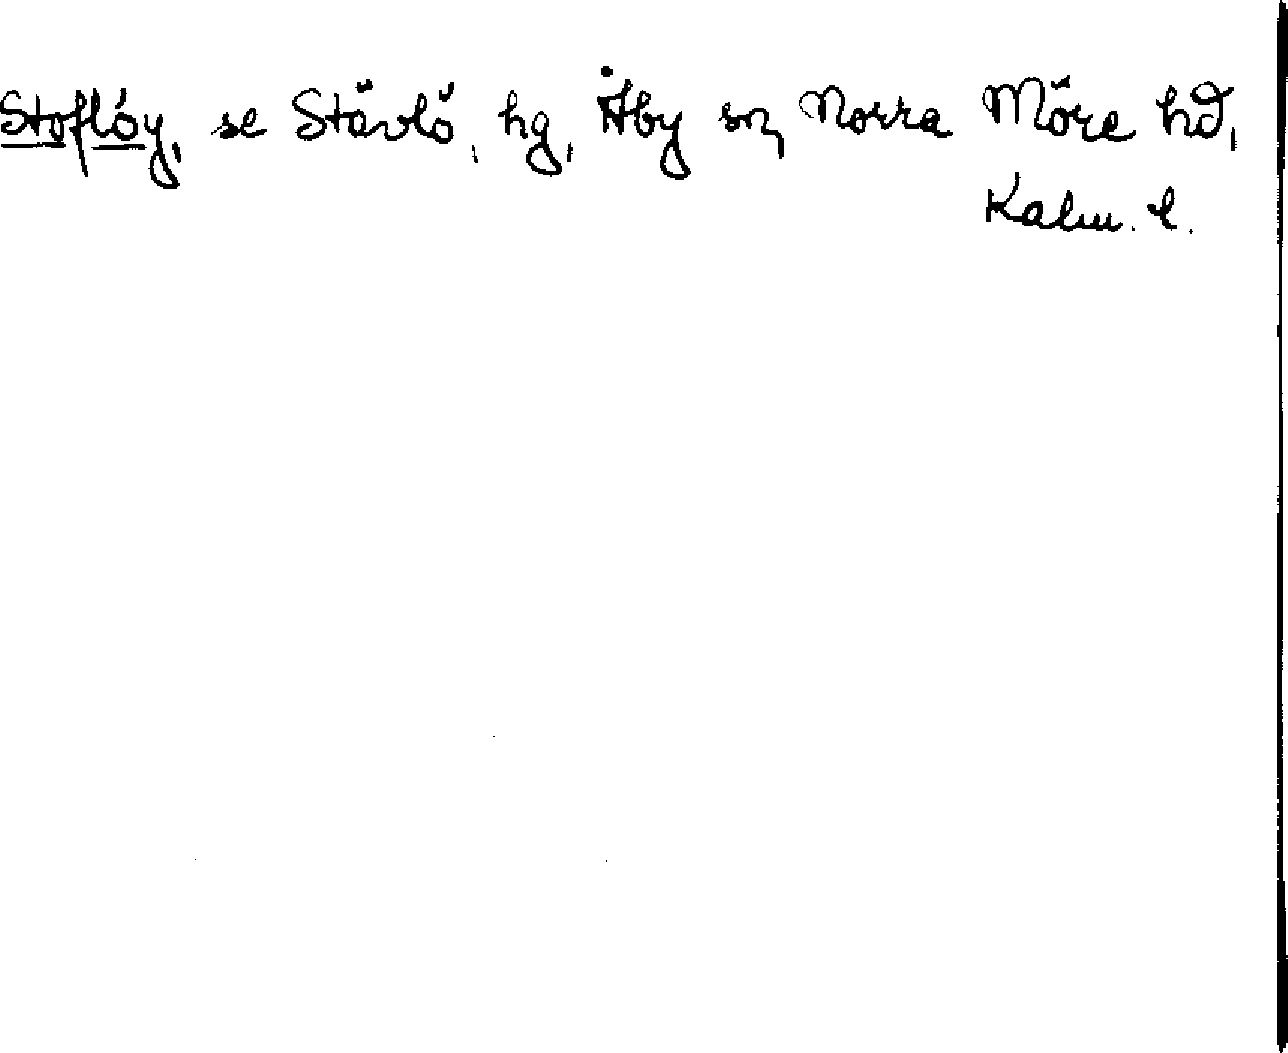 Stoflóy, se Stävlö, hg, Åby sn, Norra Möre hd,
Kalm. l.